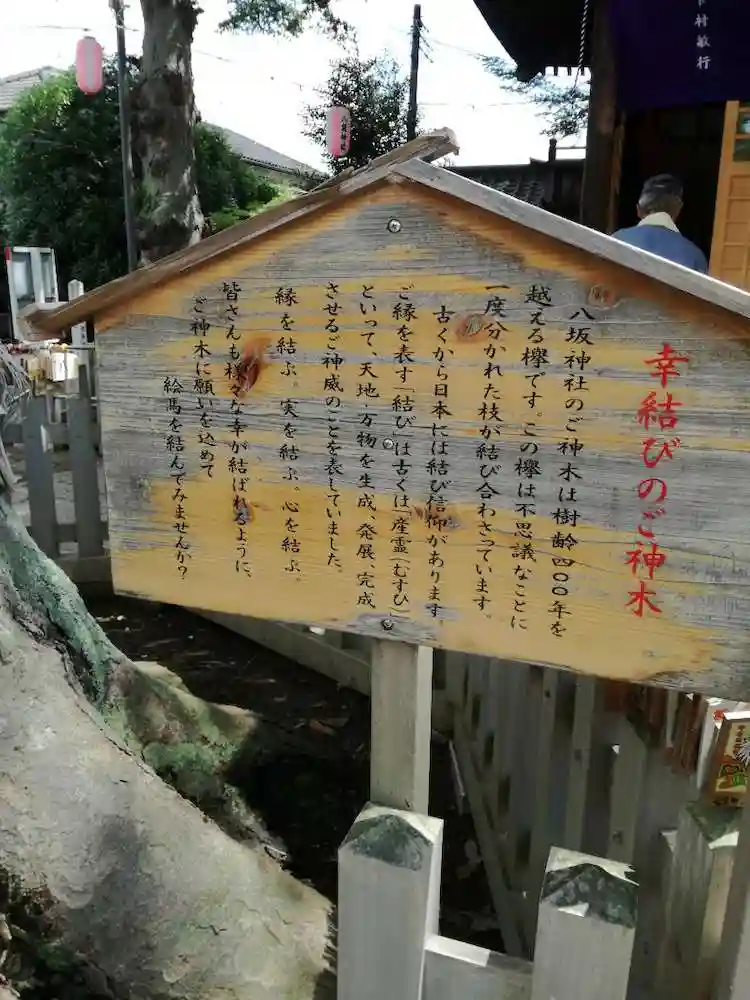 幸結びのご神木
八坂神社のご神木は樹齢四〇〇年を
越える欅です。この欅は不思議なことに
一度分かれた枝が結び合わさっています。
古くから日本には結び信仰があります。
ご縁を表す「結び」は古くは「産霊(むすひ)」
といって、天地・万物を生成、発展、完成
させるご神威のことを表していました。
縁を結ぶ。実を結ぶ。心を結ぶ。
皆さんも様々な幸が結ばれるように、
ご神木に願いを込めて
絵馬を結んでみませんか?
村敏行
八坂神社